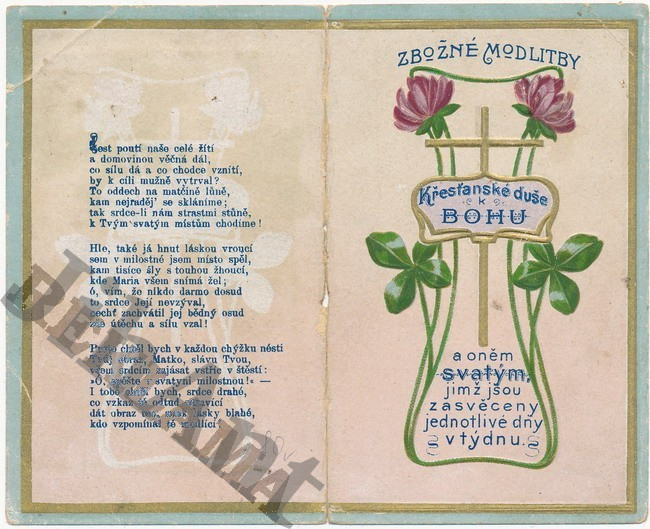 Jest poutí naše celé žítí
a domovinou věčná dál,
co sílu dá a co chodce vznítí,
by k cíli mužně vytrval?
To oddech na matčině lůně,
kam nejraděj' se skláníme;
tak srdce-li nám strastmi stůně,
k Tvým svatým místům chodíme!
Hle, také já hnut láskou vroucí
sem v milostné jsem místo spěl,
kam tisíce šly s touhou žhoucí,
kde Maria všem snímá žel;
ó, vím, že nikdo darmo dosud
to srdce Její nevzýval,
nechť zachvátil jej bědný osud
zde útěchu a sílu vzal!
Proto chtěl bych v každou chýžku nésti
Tvůj obraz, Matko, slávu Tvou,
všem srdcím zajásat vstříc v štěstí:
»Ó, spěšte v svatyni milostnou!« —
I tobě bych, srdce drahé,
co vzkaz odtud
dát obraz ten, znak lásky blahé,
kdo vzpomínal tě modlící!
ZBOŽNÉ MODLITBY
Křesťanské duše
K
BOHU
a oněm
svatým,
jimž jsou
zasvěceny
jednotlivé dny
v týdnu.